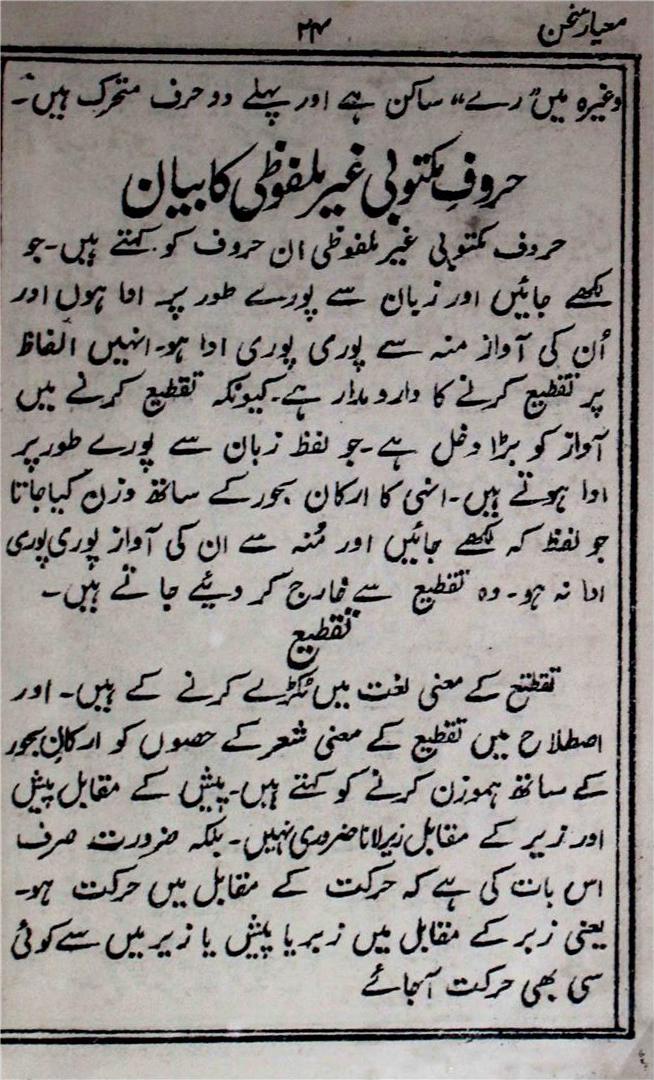 معیار سخن
۲۴
وغیرہ میں "رے" ساکن ہے اور پہلے دو حرف متحرک ہیں۔
حروفِ مکتوبی غیر ملفوظی کا بیان
حروف مکتوبی غیر ملفوظی ان حروف کو کہتے ہیں۔ جو
لکھے جائیں اور زبان سے پورے طور پر ادا ہوں اور
اُن کی آواز منہ سے پوری پوری ادا ہو۔ انہیں الفاظ
پر تقطیع کرنے کا دارومدار ہے۔ کیونکہ تقطیع کرنے میں
آواز کو بڑا دخل ہے۔ جو لفظ زبان سے پورے طور پر
ادا ہوتے ہیں۔ انہی کا ارکان بحور کے ساتھ وزن کیا جاتا
جو لفظ کہ لکھے جائیں اور مُنہ سے ان کی آواز پوری پوری
ادا نہ ہو۔ وہ تقطیع سے خارج کر دیئے جاتے ہیں۔
تقطیع
تقطیع کے معنی لغت میں ٹکڑے کرنے کے ہیں۔ اور
اصطلاح میں تقطیع کے معنی شعر کے حصوں کو ارکانِ بحور
کے ساتھ ہموزن کرنے کو کہتے ہیں۔ پیش کے مقابل پیش
اور زیر کے مقابل زیر لانا ضروری نہیں۔ بلکہ ضرورت صرف
اس بات کی ہے کہ حرکت کے مقابل میں حرکت ہو۔
یعنی زبر کے مقابل میں زبر یا پیش یا زیر میں سے کوئی
سی بھی حرکت آجائے